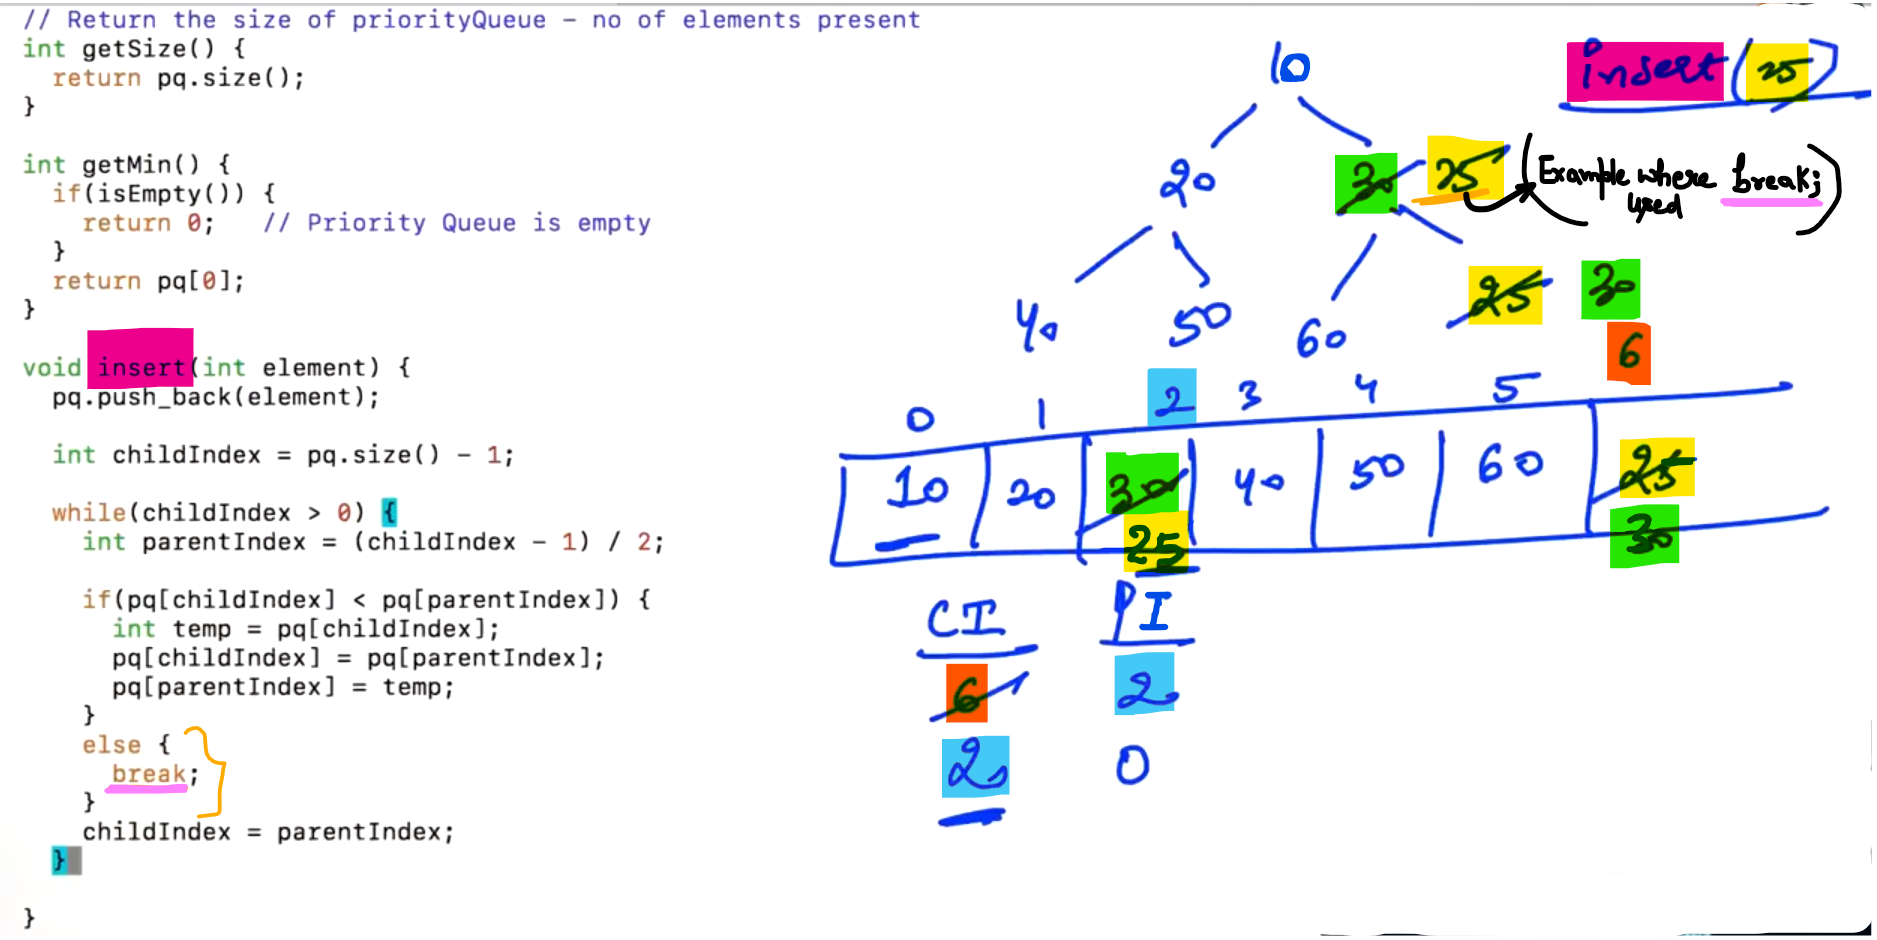 // Return the size of priorityQueue – no of elements present
int getSize() {
return pq.size();
}
int getMin() {
if(isEmpty()) {
return 0;    // Priority Queue is empty
}
return pq[0];
}
void insert(int element) {
pq.push_back(element);
int childIndex = pq.size() - 1;
while(childIndex > 0) {
int parentIndex = (childIndex - 1) / 2;
if(pq[childIndex] < pq[parentIndex]) {
int temp = pq[childIndex];
pq[childIndex] = pq[parentIndex];
pq[parentIndex] = temp;
}
else {
break;
}
childIndex = parentIndex;
}
}
insert(25)
10
20 30 25 (Example where break;
used)
40 50 60 25 30
6
0 1 2 3 4 5
10 20 30 40 50 60 25
25 30
CI PI
6 2
2 0